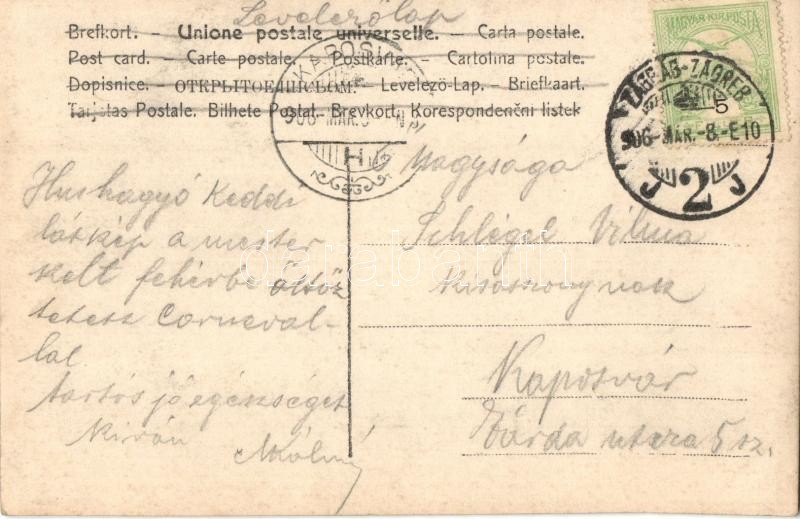 Levelezőlap
Brefkort. - Unione postale universelle. - Carta postale.
Post card. - Carte postale. Postkarte. - Cartolina postale.
Dopisnice. - ОТКРЫТОЕ ПИСЬМО. - Levelező-Lap. - Briefkaart.
Tarjetas Postale. Bilhete Postal. Brevkort. Korespondenční listek
KAPOSVÁR
906 MAR. N
H
MAGYAR KIR. POSTA
5
ZAGRAB-ZAGREB
906-MAR.-8.-E10
J 2 J
Hushagyó Keddi
látkép a mester
kelt fehérbe öltöz
tetett Carneval-
lal
tartós jó egészséget
kiván Kálmán
Nagysága
Schlégel Vilma
kisasszonynak
Kaposvár
Zárda utcza 5 sz.
darabanth